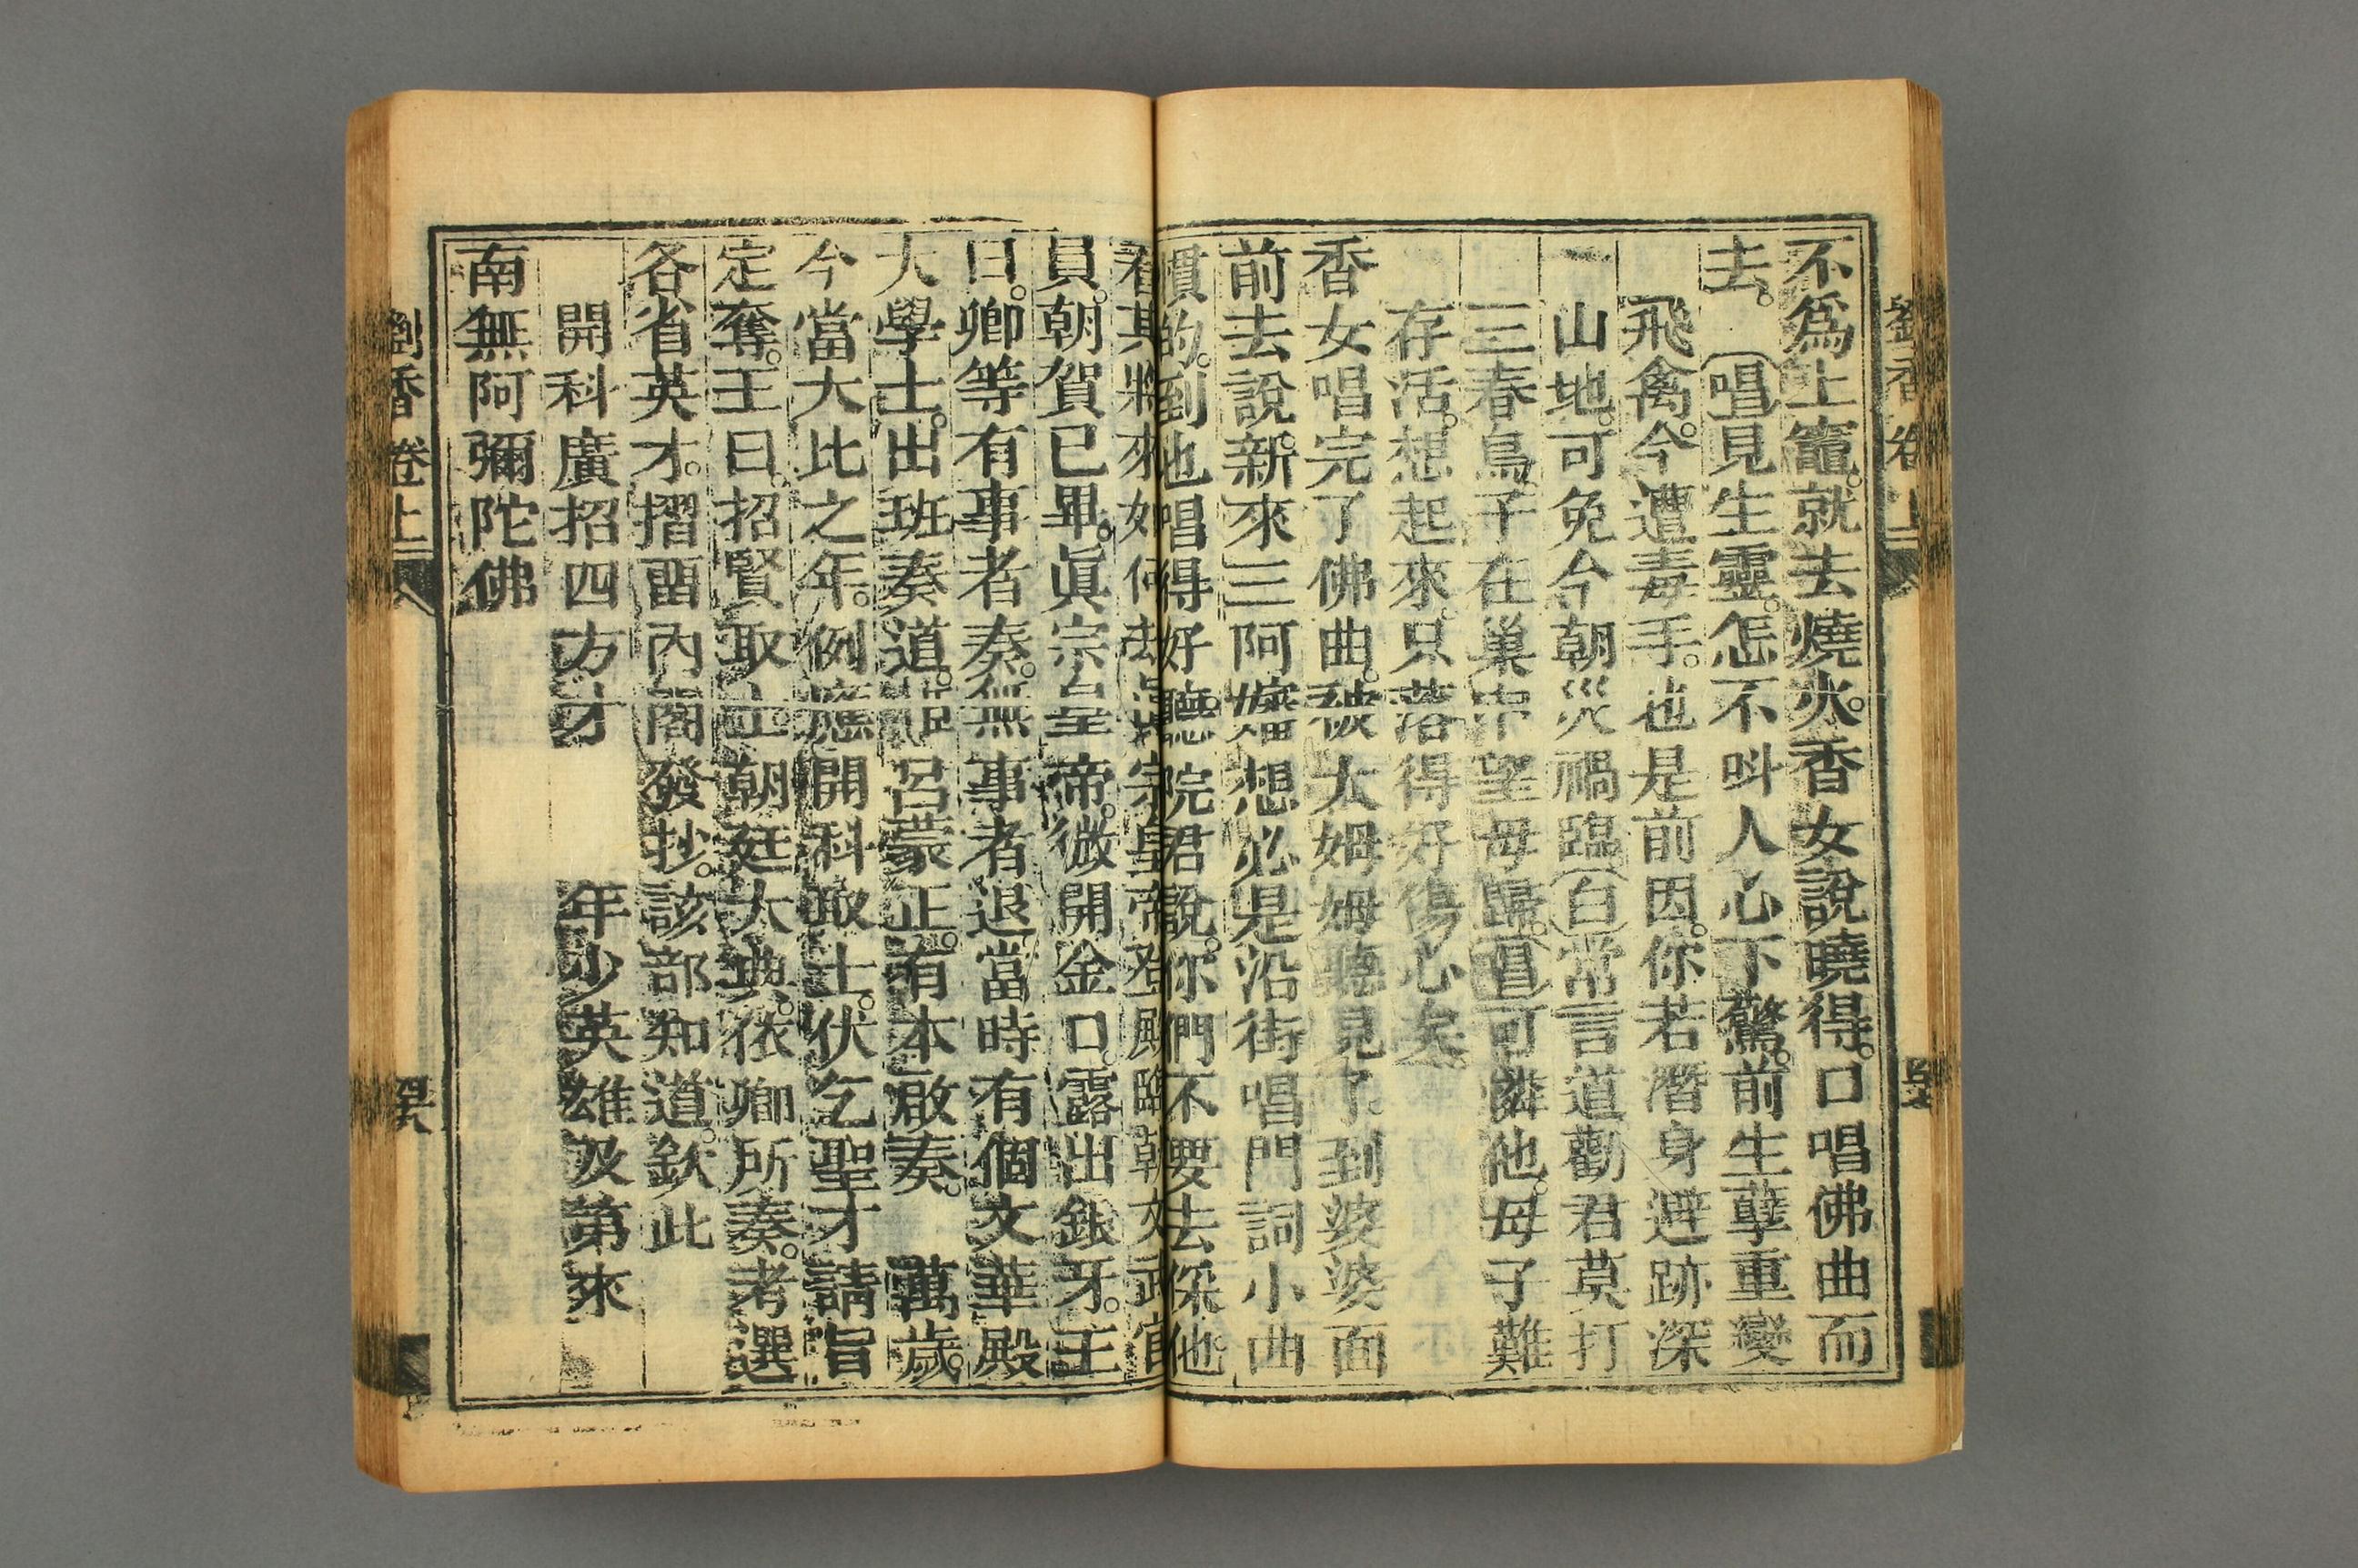 劉香卷上
不爲上竈。就去燒火。香女說曉得。口唱佛曲而
去。唱見生靈。怎不呌人心下驚。前生孽重變
飛禽。今遭毒手。也是前因。你若潛身避跡深
山地。可免今朝災禍臨白常言道勸君莫打
三春鳥。子在巢中望母歸。唱可憐他。母子難
存活。想起來。只落得好傷心矣。
香女唱完了佛曲。被大姆姆聽見了。到婆婆面
前去說。新來三阿嬸想必是沿街唱門詞小曲
慣的。到也唱得好聽。院君說。你們不要去保他。
看其將來如何去 宗皇帝登殿臨朝文武官
員。朝賀已畢。眞宗皇帝。微開金口。露出銀牙。王
曰。卿等有事者奏。無事者退當時有個文華殿
大學士。出班奏道。 呂蒙正。有本啟奏。萬歲。
今當大比之年。例應開科取士。伏乞聖才請旨
定奪。王曰。招賢取士。朝廷大典。依卿所奏。考選
各省英才。摺畱內閣發抄。該部知道。欽此
開科廣招四方才 年少英雄及第來
南無阿彌陀佛
劉香卷上
四十六